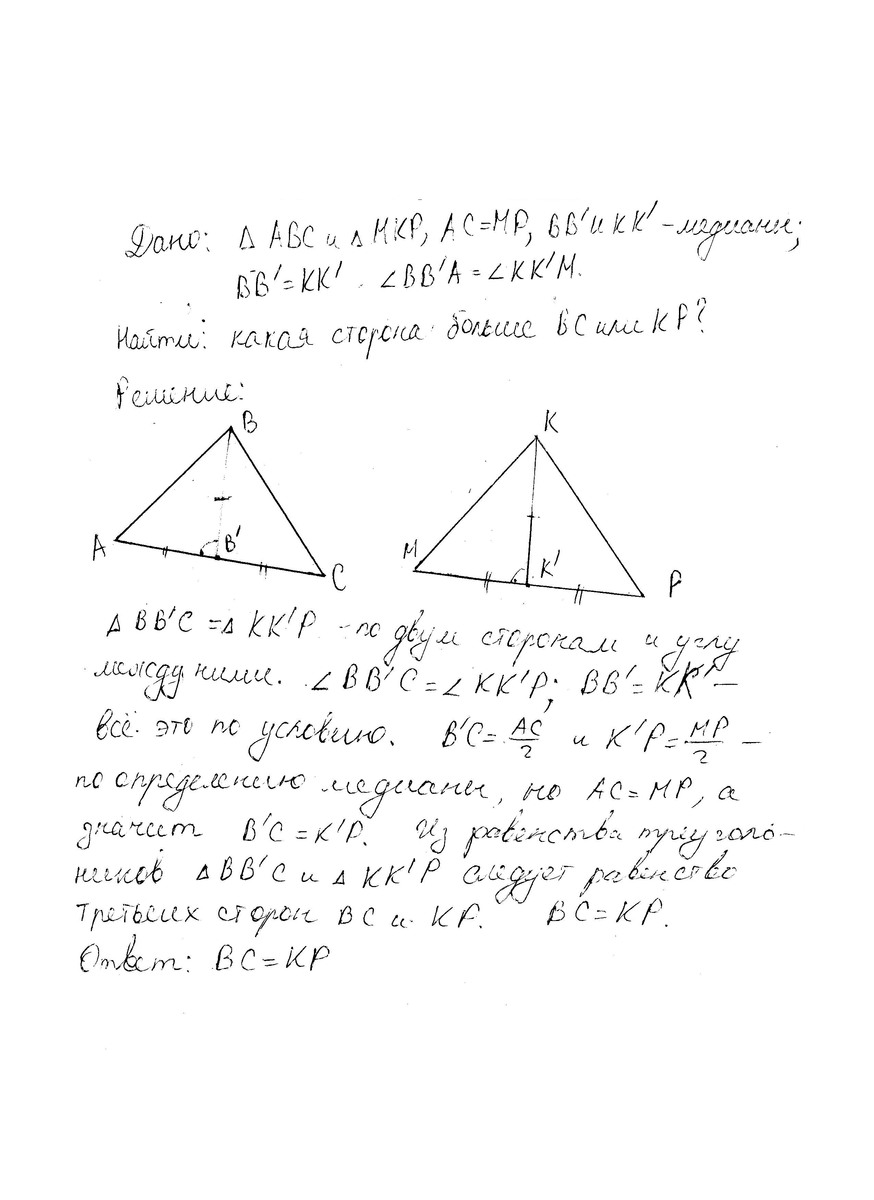 Дано: Δ ABC и Δ MKP, AC=MP, BB' и KK' - медианы;
BB'=KK'. ∠BB'A=∠KK'M.
Найти: какая сторона больше BC или KP?
Решение:
B
K
A
B'
C
M
K'
P
Δ BB'C = Δ KK'P - по двум сторонам и углу
между ними. ∠BB'C=∠KK'P; BB'=KK' -
всё это по условию. B'C=AC/2 и K'P=MP/2 -
по определению медианы, но AC=MP, а
значит B'C=K'P. Из равенства треуголь-
ников Δ BB'C и Δ KK'P следует равенство
третьих сторон BC и KP. BC=KP.
Ответ: BC=KP